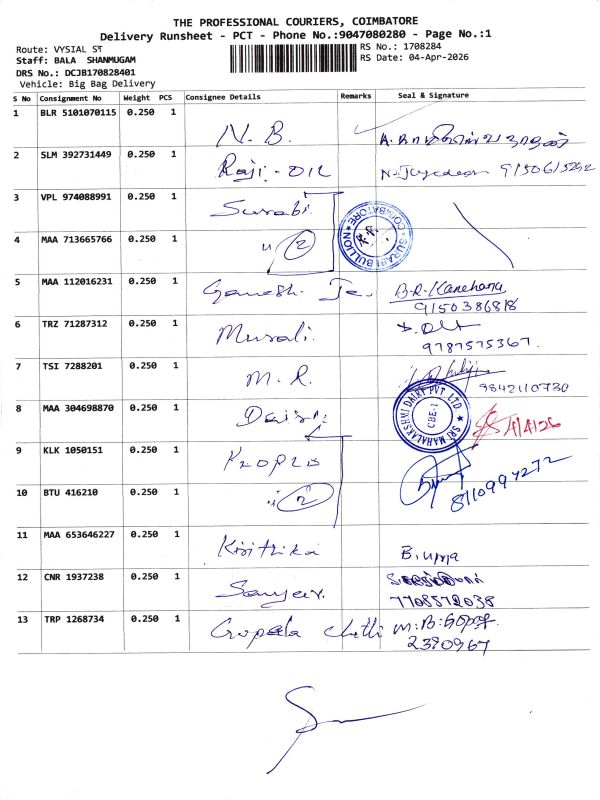 THE PROFESSIONAL COURIERS, COIMBATORE
Delivery Runsheet - PCT - Phone No.:9047080280 - Page No.:1
Route: VYSIAL ST
Staff: BALA SHANMUGAM
DRS No.: DCJB170828401
Vehicle: Big Bag Delivery
RS No.: 1708284
RS Date: 04-Apr-2026
S No Consignment No Weight PCS Consignee Details Remarks Seal & Signature
1 BLR 5101070115 0.250 1 N. B.
2 SLM 392731449 0.250 1 Raji-OIL
3 VPL 974088991 0.250 1 Surabi
COIMBATORE SURABI BULLION
4 MAA 713665766 0.250 1 " 2
5 MAA 112016231 0.250 1 Ganesh B.R.Kanchana
9150386818
6 TRZ 71287312 0.250 1 Murali
9787575367
7 TSI 7288201 0.250 1 M. R.
9842110730
8 MAA 304698870 0.250 1
SRI MAHALAKSHMI DAIRY PVT LTD CBE-1
9 KLK 1050151 0.250 1
8110994272
10 BTU 416210 0.250 1 2
11 MAA 653646227 0.250 1 Kirithika B. uma
12 CNR 1937238 0.250 1 Sanjeev
7708572038
13 TRP 1268734 0.250 1 Gopala Chetti
2390967